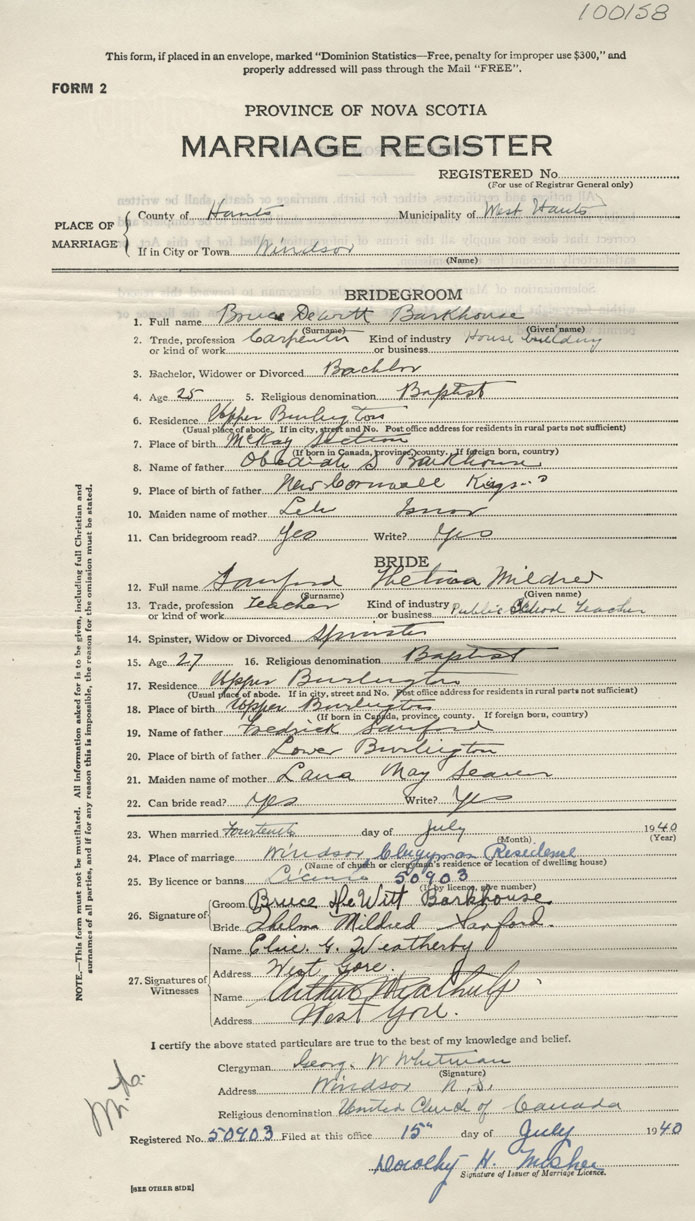 100158
This form, if placed in an envelope, marked "Dominion Statistics—Free, penalty for improper use $300," and
properly addressed will pass through the Mail "FREE".
FORM 2
PROVINCE OF NOVA SCOTIA
MARRIAGE REGISTER
REGISTERED No.
(For use of Registrar General only)
PLACE OF MARRIAGE
County of Hants Municipality of West Hants
If in City or Town Windsor
(Name)
BRIDEGROOM
1. Full name Bruce Dewitt Barkhouse
(Surname) (Given name)
2. Trade, profession or kind of work Carpenter Kind of industry or business House building
3. Bachelor, Widower or Divorced Bachlor
4. Age 25 5. Religious denomination Baptist
6. Residence Upper Burlington
(Usual place of abode. If in city, street and No. Post office address for residents in rural parts not sufficient)
7. Place of birth McKay Section
(If born in Canada, province, county. If foreign born, country)
8. Name of father Obediah S Barkhouse
9. Place of birth of father New Cornwall Kings
10. Maiden name of mother
11. Can bridegroom read? Yes Write? Yes
BRIDE
12. Full name Sanford Thelma Mildred
(Surname) (Given name)
13. Trade, profession or kind of work Teacher Kind of industry or business Public School Teacher
14. Spinster, Widow or Divorced Spinster
15. Age 27 16. Religious denomination Baptist
17. Residence Upper Burlington
(Usual place of abode. If in city, street and No. Post office address for residents in rural parts not sufficient)
18. Place of birth Upper Burlington
(If born in Canada, province, county. If foreign born, country)
19. Name of father Fredrick Sanford
20. Place of birth of father Lower Burlington
21. Maiden name of mother Laura May
22. Can bride read? Yes Write? Yes
23. When married Fourteenth day of July 1940
(Month) (Year)
24. Place of marriage Windsor Clergyman Residence
(Name of church or clergyman's residence or location of dwelling house)
25. By licence or banns Licence 50903
(if by licence, give number)
26. Signature of
Groom Bruce DeWitt Barkhouse
Bride Thelma Mildred Sanford.
27. Signatures of Witnesses
Name Elsie G. Weatherby
Address West Gore.
Name Arthur
Address West Gore.
I certify the above stated particulars are true to the best of my knowledge and belief.
Clergyman George W Whitman
(Signature)
Address Windsor N.S.
Religious denomination United Church of Canada
Registered No. 50903 Filed at this office 15" day of July 1940
Dorothy H. Mosher
Signature of Issuer of Marriage Licence.
[SEE OTHER SIDE]
NOTE.—This form must not be mutilated. All information asked for is to be given, including full Christian and
surnames of all parties, and if for any reason this is impossible, the reason for the omission must be stated.